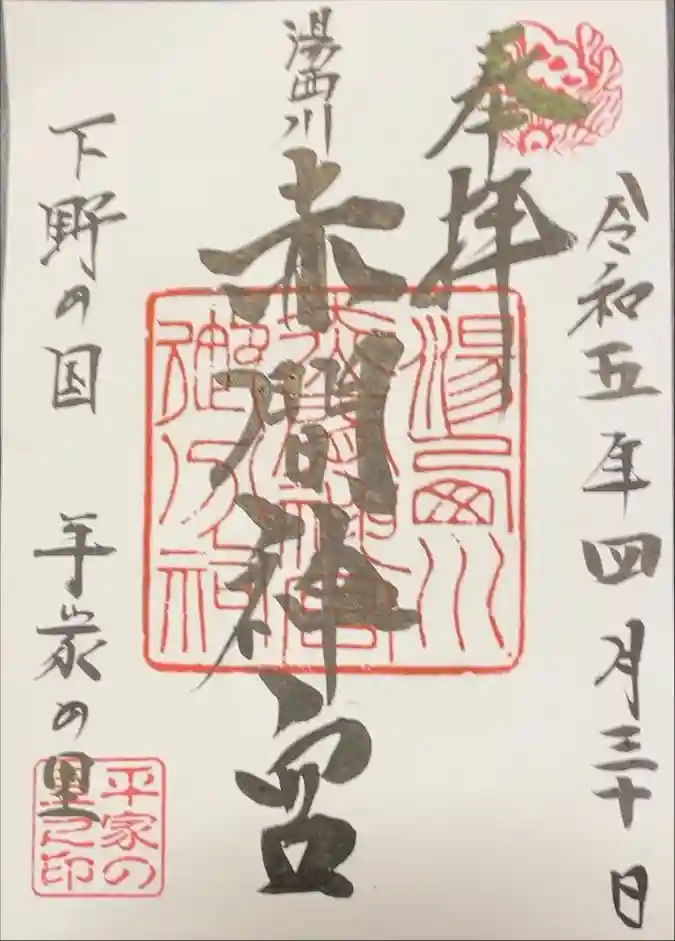 令和五年四月三十日
奉拝
湯西川
赤間神宮
湯西川
赤間神宮
御分祠
下野の国 平家の里
平家の
里之印